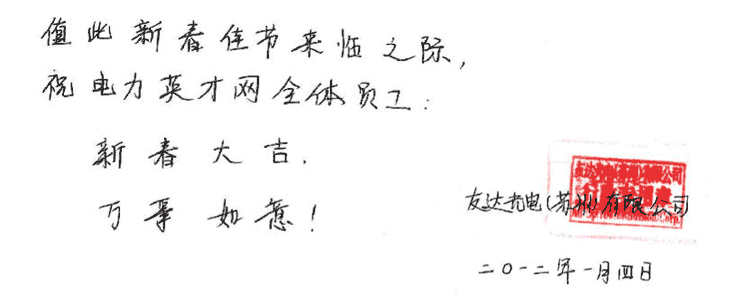 值此新春佳节来临之际,
祝电力英才网全体员工:
新春大吉.
万事如意!
友达光电(苏州)有限公司
友达光电(苏州)有限公司
二〇一二年一月四日